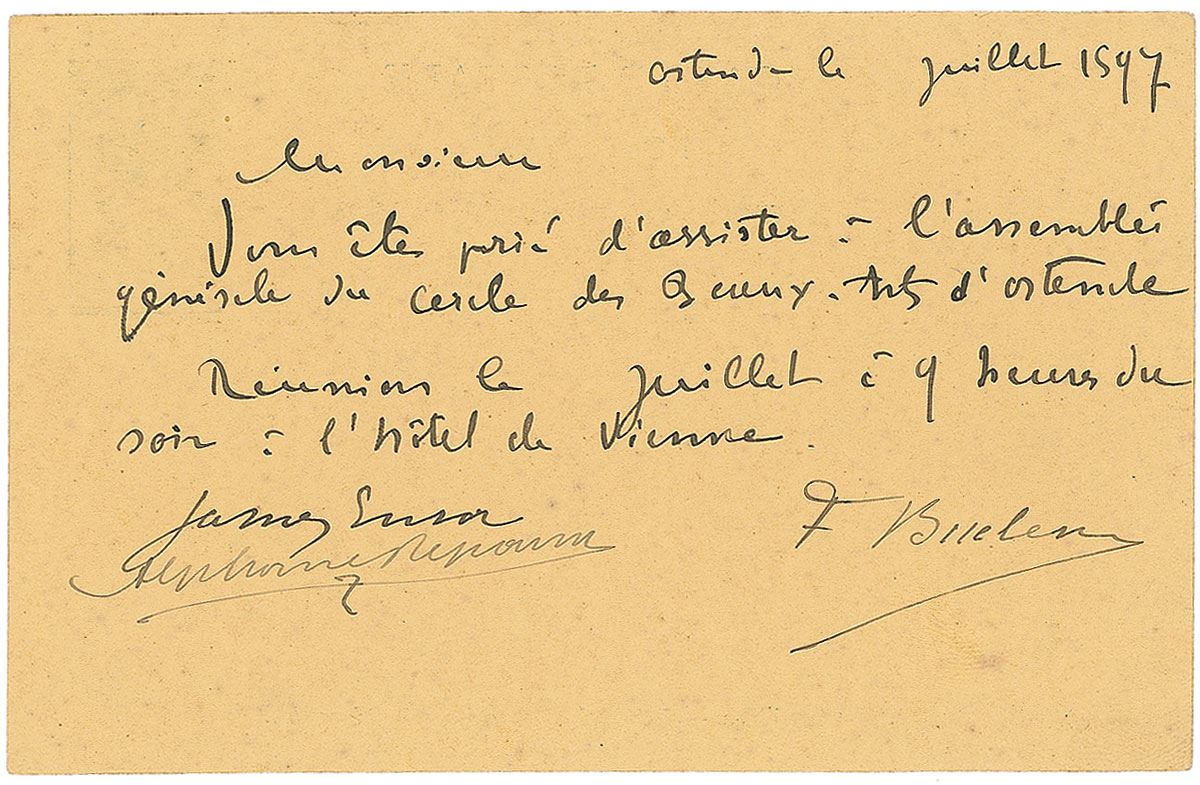 Ostende le juillet 1897
Monsieur
Vous êtes prié d'assister à l'assemblée
générale du cercle des Beaux-Arts d'ostende
Réunion le juillet à 9 heures du
soir à l'hôtel de Vienne.
James Ensor
F Buelens
Alphonse